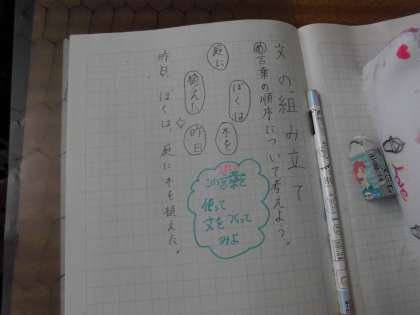 文の組み立て
め言葉の順序について考えよう。
ぼくは
木を
庭に
植えた
昨日
この言葉を
使って
文をつくって
みよ
昨日、ぼくは、庭に木を植えた。
Love